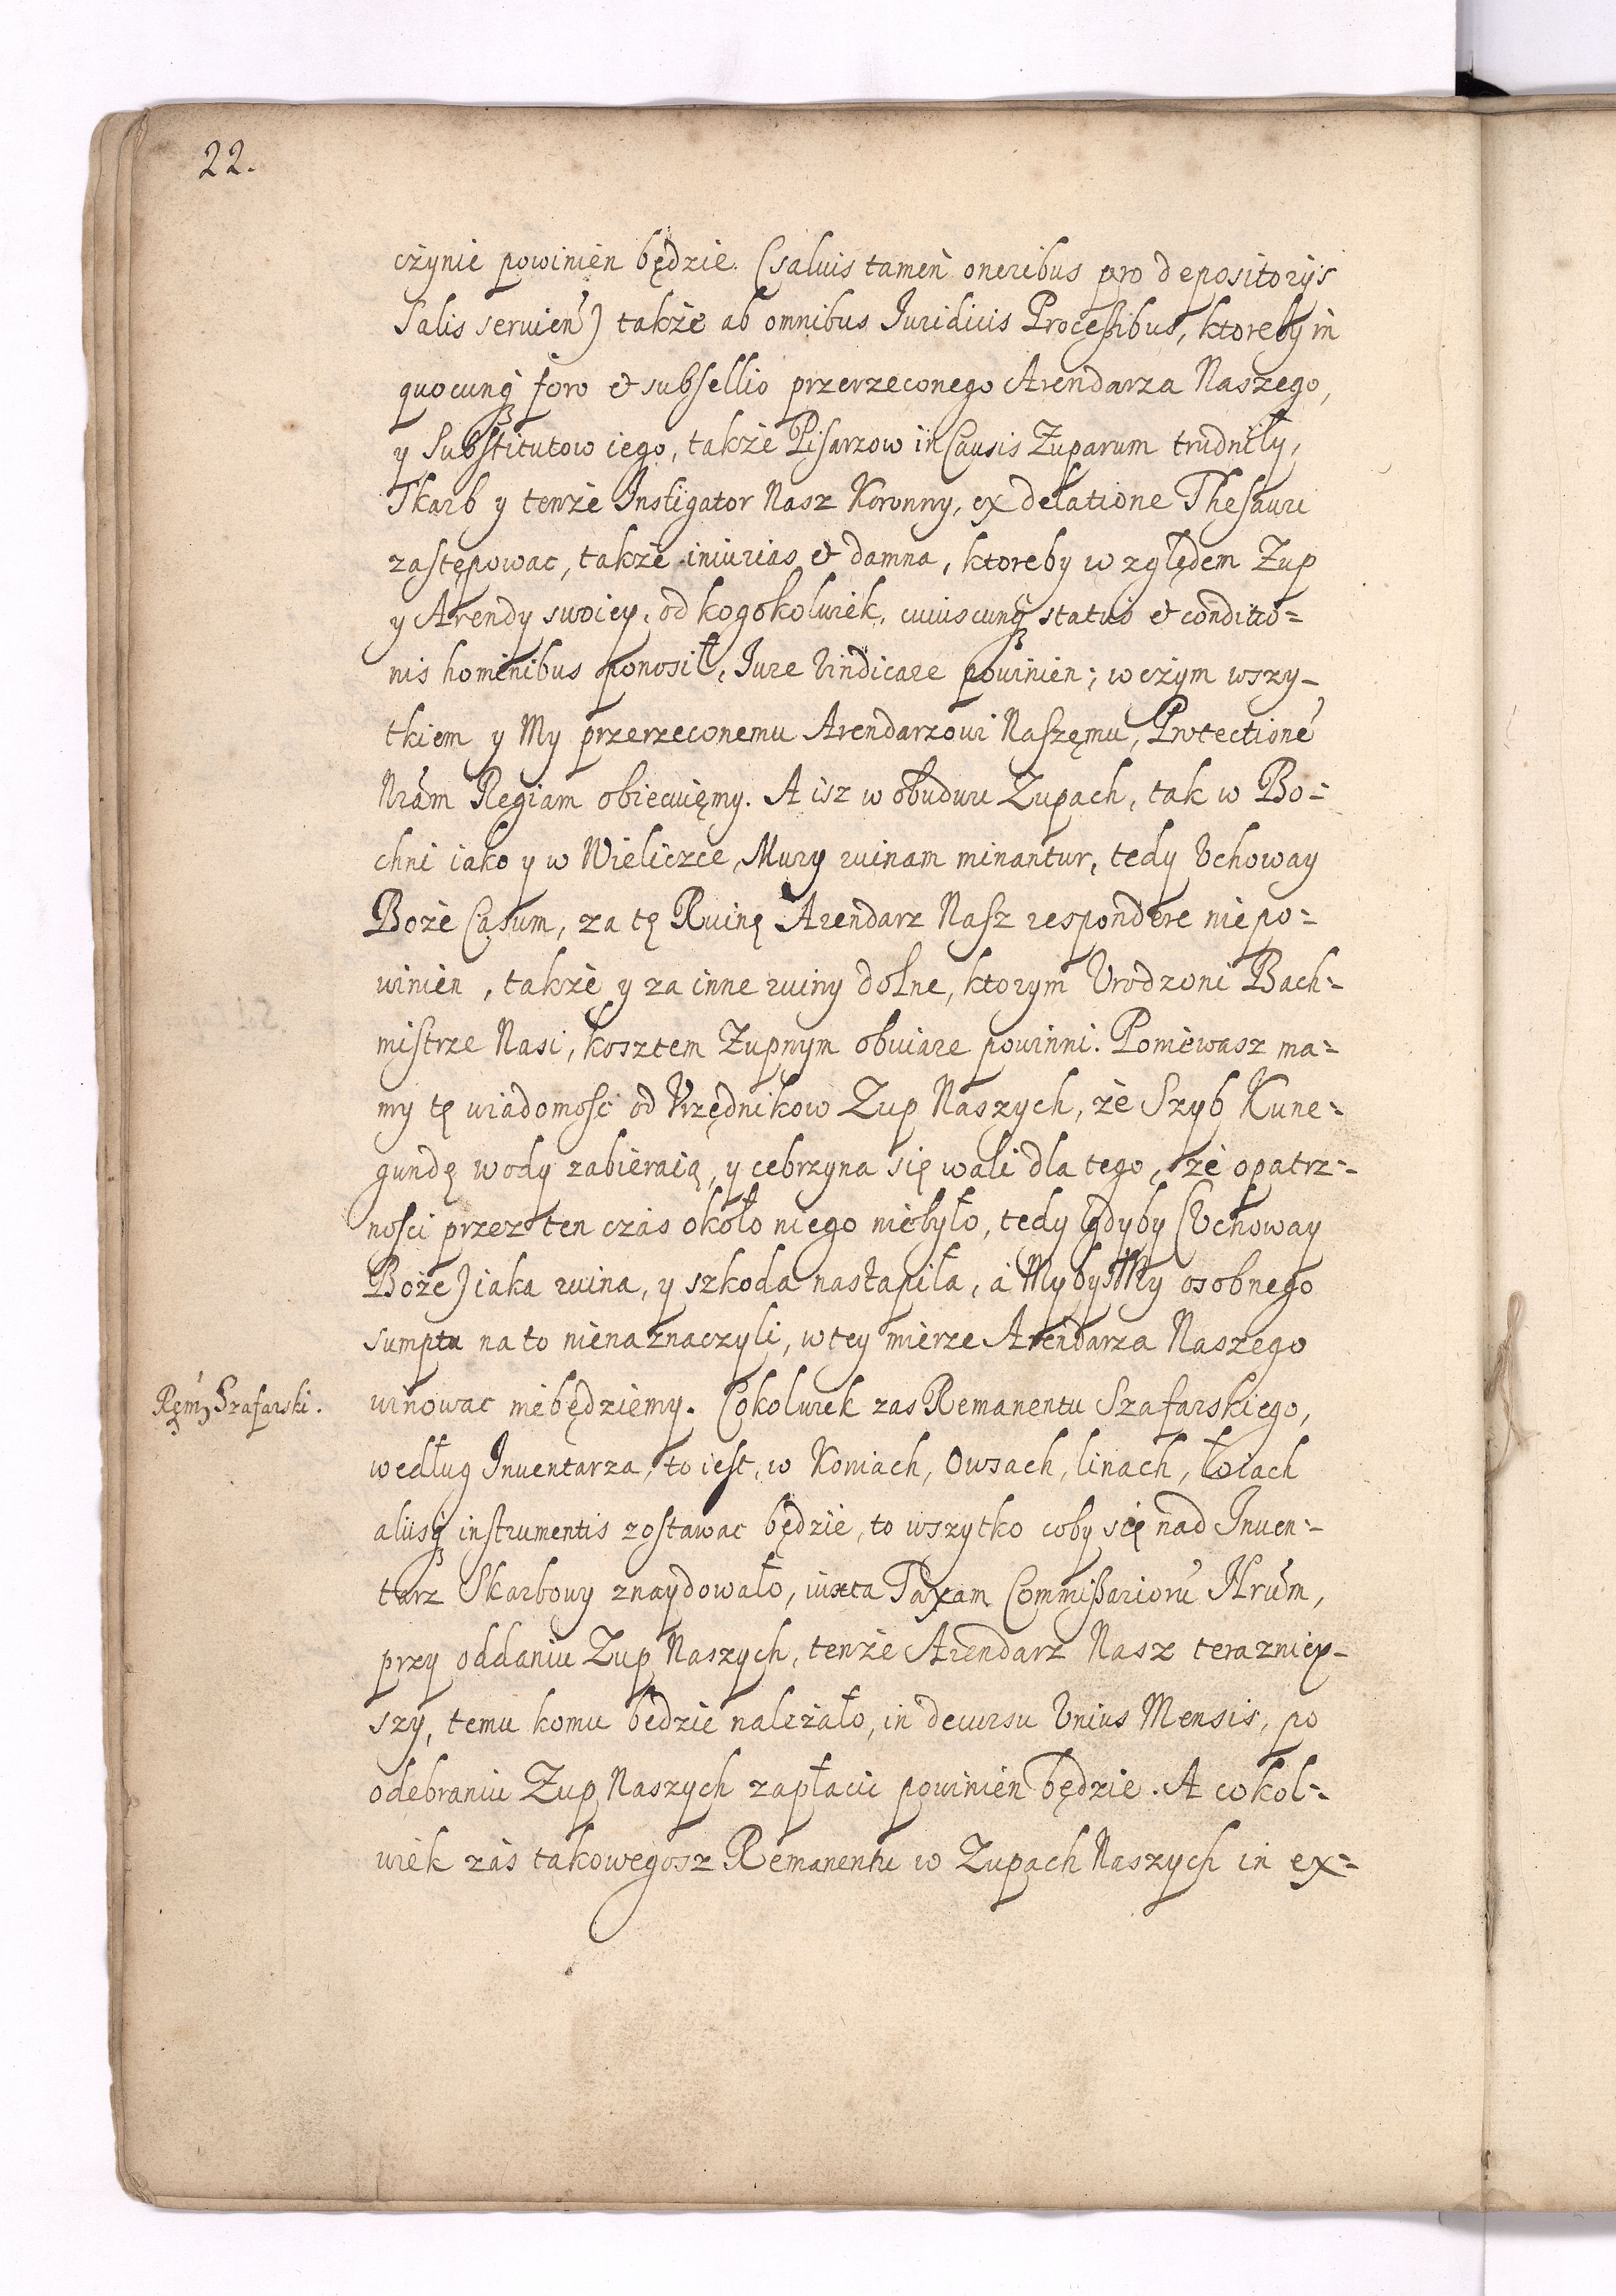 22.
czynic powinien będzie. (salvis tamen oneribus pro depositorijs
Salis servien̄) także ab omnibus Iuridicis Processibus, ktoreby in
quocunq̨ foro et subsellio przerzeconego Arendarza Naszego,
y Substitutow iego, także Pisarzow in Causis Zuparum trudniły,
Skarb y tenże Instigator Nasz Koronny, ex delatione Thesauri
zastępowac, także iniurias et damna, ktoreby względem Zup
y Arendy swoiey, od kogokolwiek, cuiuscunq̨ status et conditio=
nis hominibus ponosił, Iure Vindicare powinien; w czym wszy-
tkiem y My przerzeconemu Arendarzowi Naszęmu, Protectione̅
Nra̅m Regiam obiecuięmy. A isz w obudwu Zupach, tak w Bo=
chni iako y w Wieliczce, Mury ruinam minantur, tedy Vchoway
Boże Casum, za tę Ruinę Arendarz Nasz respondere niepo=
winien, także y za inne ruiny dolne, ktorym Vrodzoni Bach=
mistrze Nasi, kosztem Zupnym obviare powinni. Poniewasz ma=
my tę wiadomosc od Vrzędnikow Zup Naszych, że Szyb Kune=
gundę wody zabieraią, y cebrzyna się wali dla tego, że opatrz=
nosci przez ten czas około niego niebyło, tedy gdyby (Vchoway
Boże) iaka ruina, y szkoda nastąpiła, a MybysMy osobnego
sumptu na to nienaznaczyli, w tey mierze Arendarza Naszego
winowac niebędziemy. Cokolwiek zas Remanentu Szafarskiego,
Rem: Szafarski.
według Inventarza, to iest, w Koniach, Owsach, linach, łoiach
alijsq̨ instrumentis zostawac będzie, to wszytko coby się nad Inven=
tarz Skarbowy znaydowało, iuxta Taxam Commissarioru̅ Nru̅m,
przy oddaniu Zup Naszych, tenże Arendarz Nasz terazniey-
szy, temu komu będzie należało, in decursu Vnius Mensis, po
odebraniu Zup Naszych zapłacic powinien będzie. A cokol=
wiek zas takowegosz Remanentu w Zupach Naszych in ex=